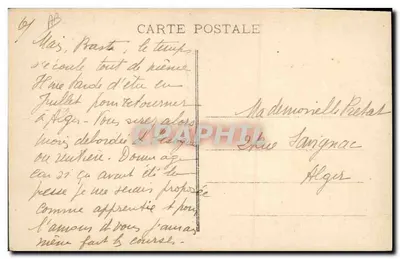 CARTE POSTALE
Mais, Baste, le temps
s'écoule tout de même
Il me tarde d'être en
Juillet pour retourner
à Alger. Vous serez alors
moins débordée
ou rentière. Dommage
car si ça avait été de
presse je me serais proposée
comme apprentie & pour
l'amour de vous j'aurais
même fait les courses.
Mademoiselle
2 rue Savignac
Alger